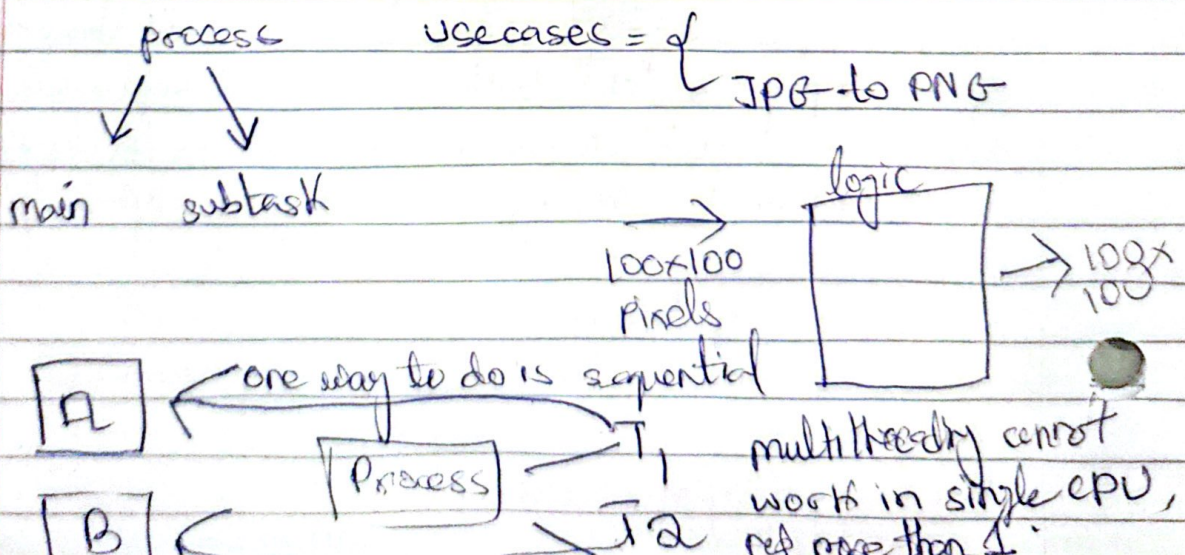 process usecases = {
JPG to PNG
main subtask
logic
100x100
pixels
100x
100
A
one way to do is sequential
T1
Process
multithreading cannot
work in single CPU,
B
T2
more than 1.